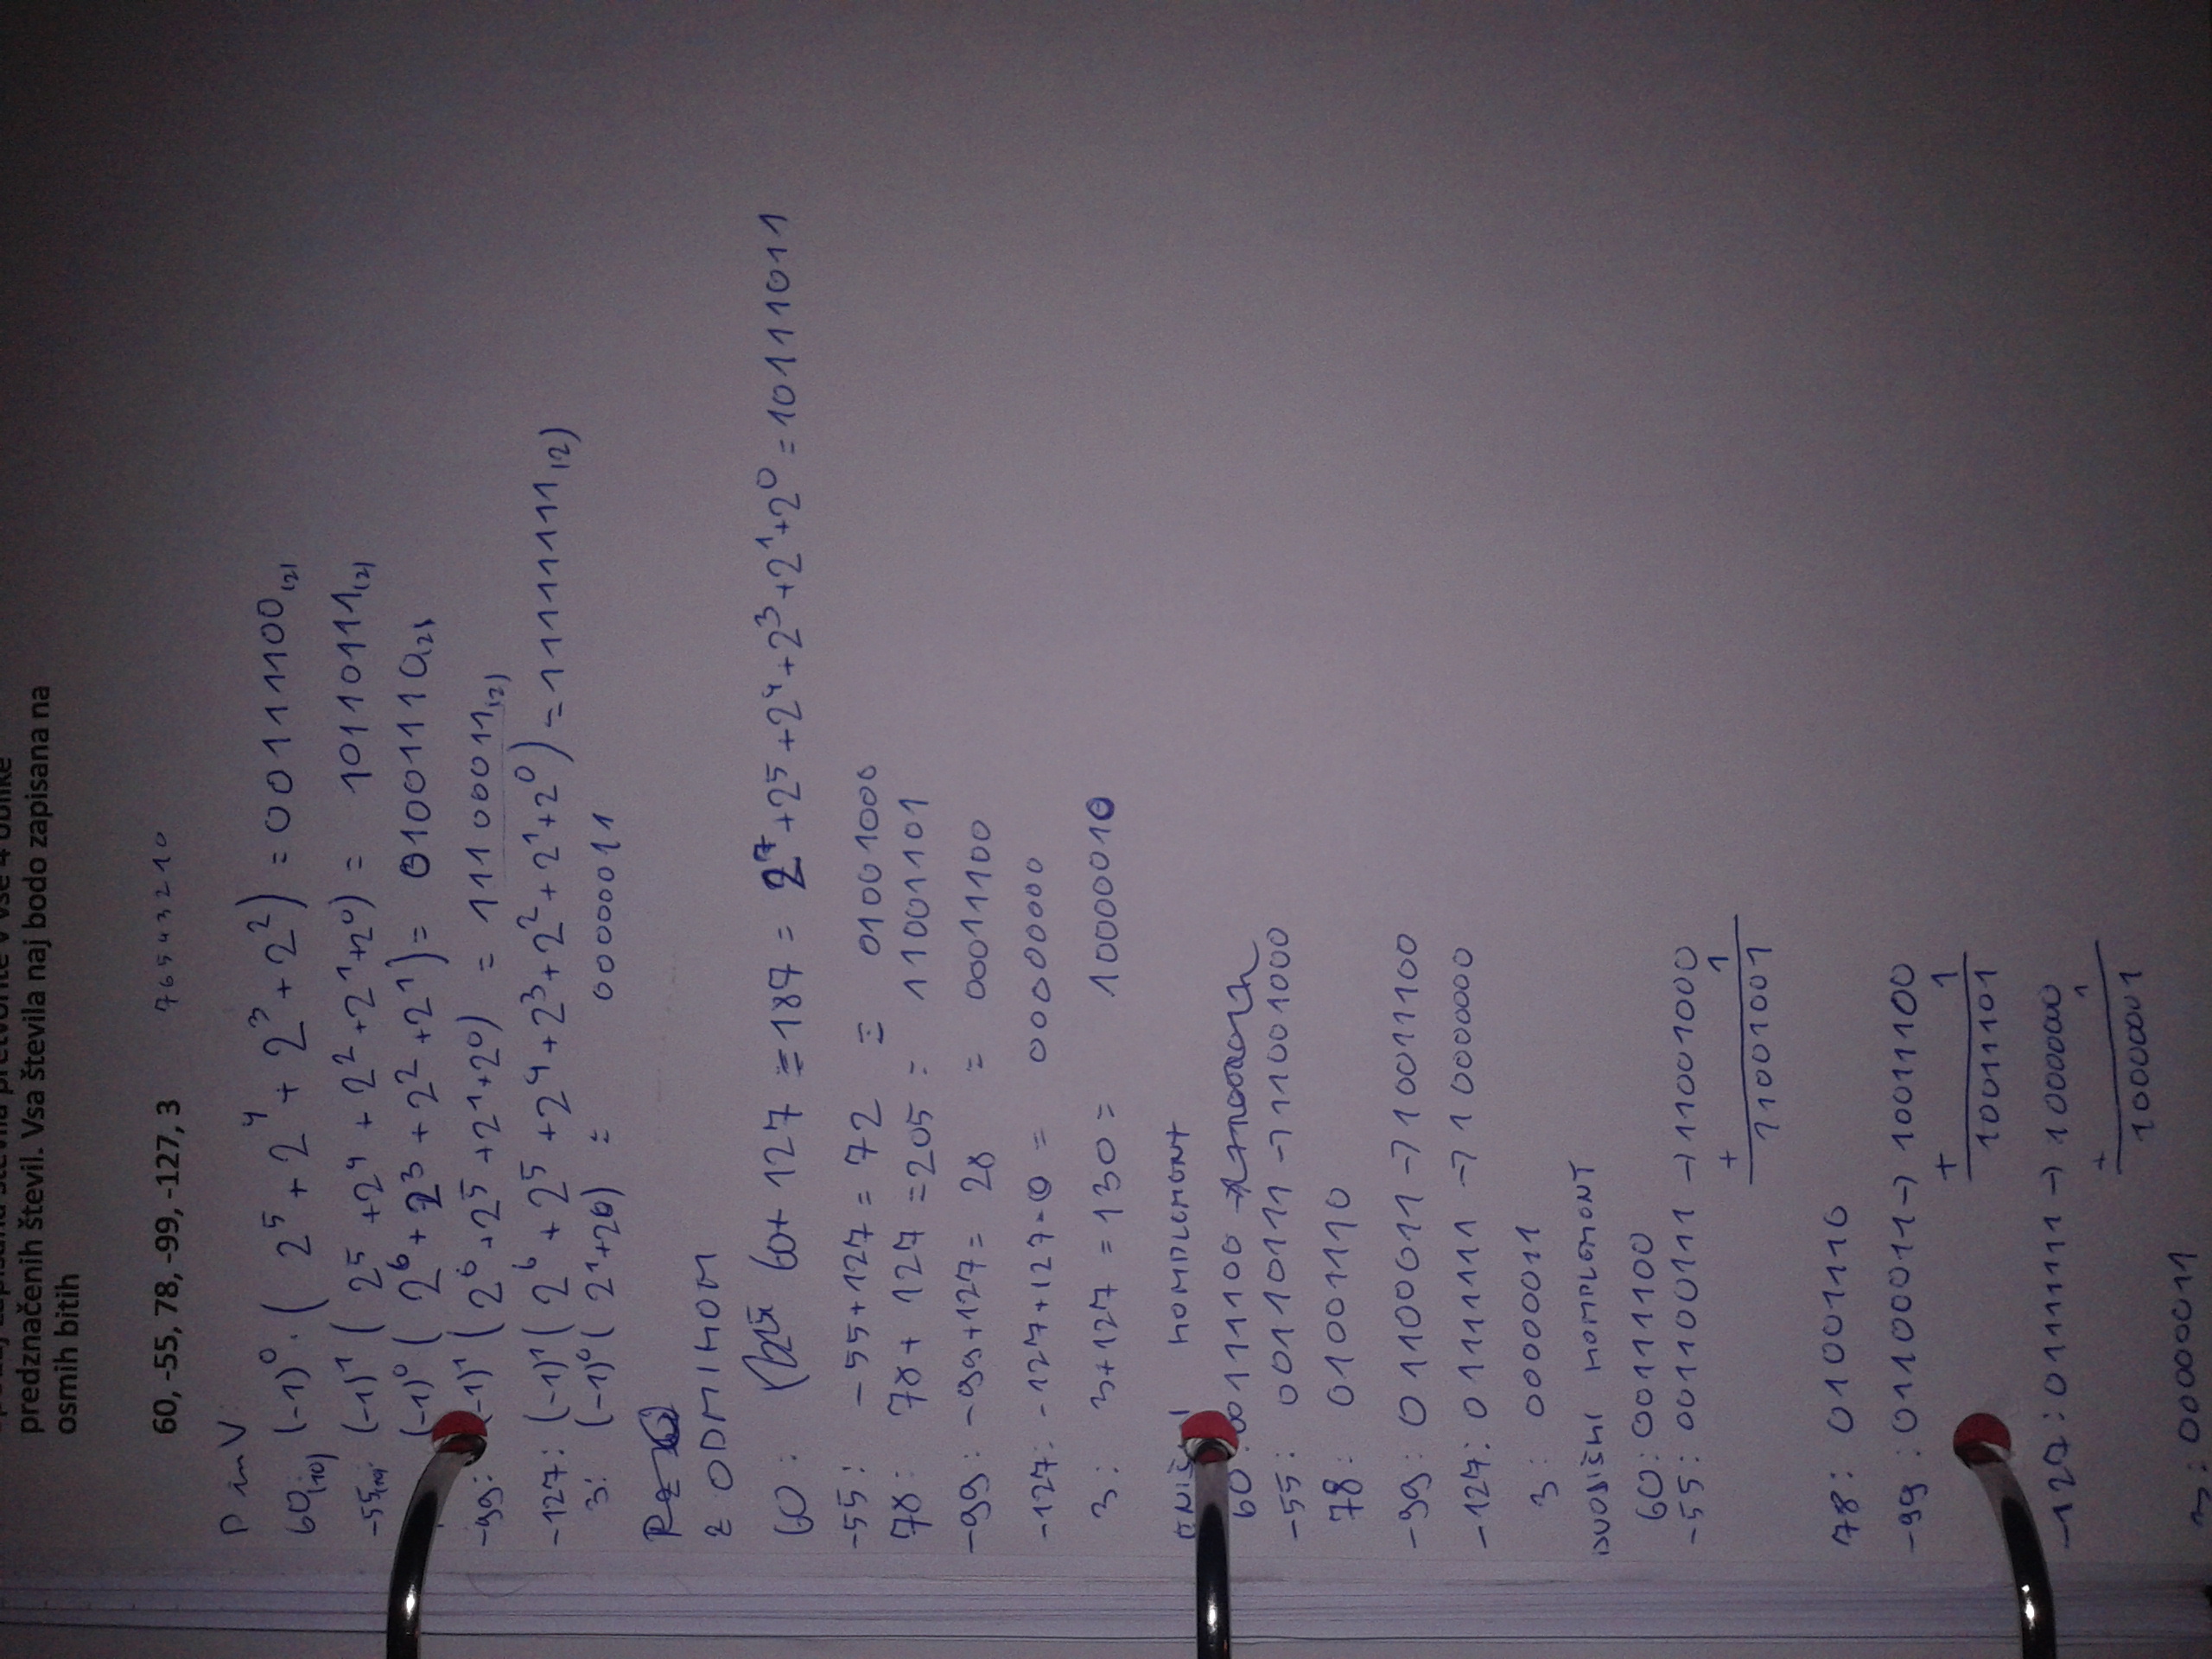 predznačenih števil. Vsa števila naj bodo zapisana na
osmih bitih
60, -55, 78, -99, -127, 3
7 6 5 4 3 2 1 0
P in V
60(10) (-1)⁰ · ( 2⁵ + 2⁴ + 2³ + 2² ) = 00111100(2)
-55(10): (-1)¹ ( 2⁵ + 2⁴ + 2² + 2¹ + 2⁰ ) = 10110111(2)
(-1)⁰ ( 2⁶ + 2³ + 2² + 2¹ ) = 01001110(2)
-99: (-1)¹ ( 2⁶ + 2⁵ + 2¹ + 2⁰ ) = 11100011(2)
-127: (-1)¹ ( 2⁶ + 2⁵ + 2⁴ + 2³ + 2² + 2¹ + 2⁰ ) = 11111111(2)
3: (-1)⁰ ( 2¹ + 20 ) = 00000011
Z ODMIKOM
60: 60+ 127 = 187 = 2⁷ + 2⁵ + 2⁴ + 2³ + 2¹ + 2⁰ = 10111011
-55: -55+127 = 72 = 01001000
78: 78+ 127 = 205 = 11001101
-99: -99+127 = 28 = 00011100
-127: -127+127=0 = 00000000
3: 3+127 = 130 = 10000010
ENIŠKI KOMPLEMENT
60: 00111100
-55: 00110111 → 11001000
78: 01001110
-99: 01100011 → 10011100
-127: 01111111 → 1000000
3: 00000011
DVOJIŠKI KOMPLEMENT
60: 00111100
-55: 001100111 → 11001000
+ 1
11001001
78: 01001110
-99: 01100011 → 10011100
+ 1
10011101
-127: 01111111 → 1000000
+ 1
1000001
3: 00000011